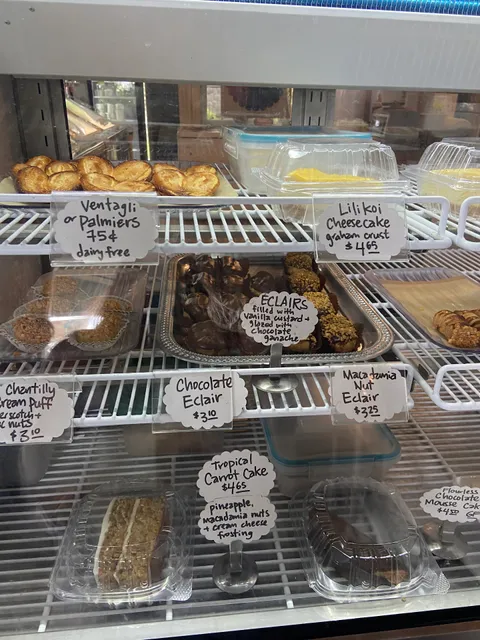 Ventagli
or Palmiers
75¢
dairy free
Lilikoi
Cheesecake
graham crust
$4.65
ECLAIRS
filled with
vanilla custard +
glazed with
chocolate
ganache
Chantilly
Cream Puff
nuts
$3.10
Chocolate
Eclair
$3.10
Macadamia
Nut
Eclair
$3.25
Tropical
Carrot Cake
$4.65
pineapple,
macadamia nuts
+ cream cheese
frosting
Flourless
Chocolate
Mousse Cake